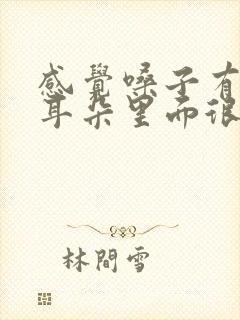 感覺嗓子有
耳朵里面很
林間雪